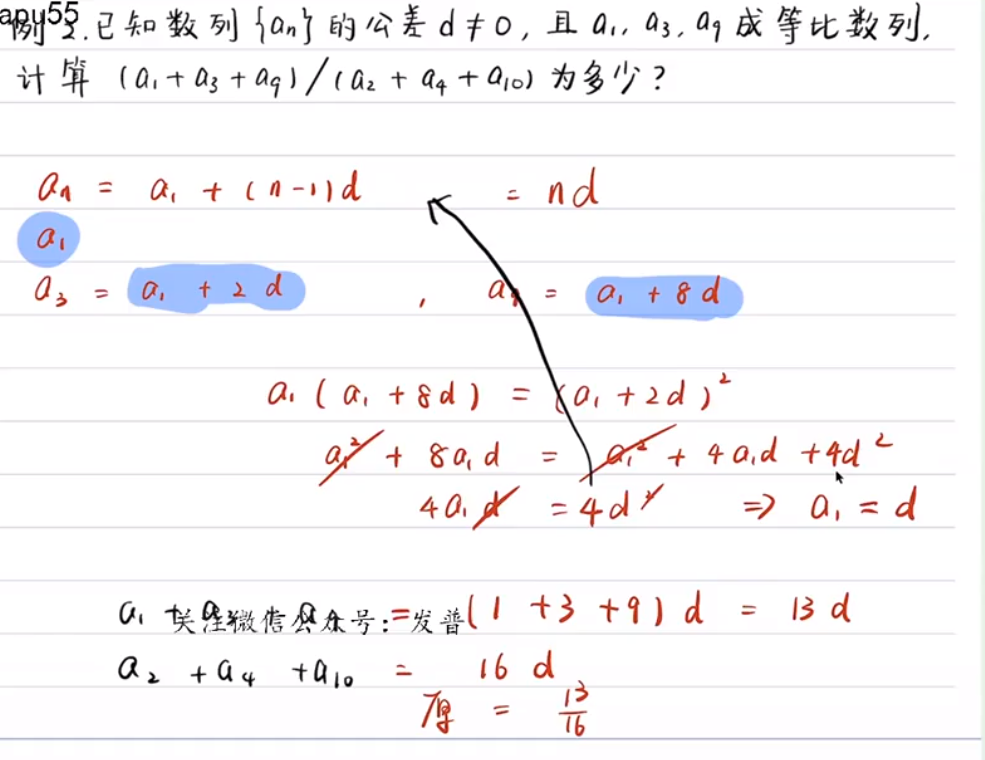 apu55
例2.已知数列{aₙ}的公差d≠0,且a₁,a₃,a₉成等比数列.
计算(a₁+a₃+a₉)/(a₂+a₄+a₁₀)为多少?
aₙ = a₁+(n-1)d = nd
a₁
a₃ = a₁+2d , a₉ = a₁+8d
a₁(a₁+8d) = (a₁+2d)²
a₁²+8a₁d = a₁²+4a₁d+4d²
4a₁d = 4d² => a₁=d
a₁+a₃+a₉ = (1+3+9)d = 13d
关注微信公众号:发普
a₂+a₄+a₁₀ = 16d
原 = 13/16